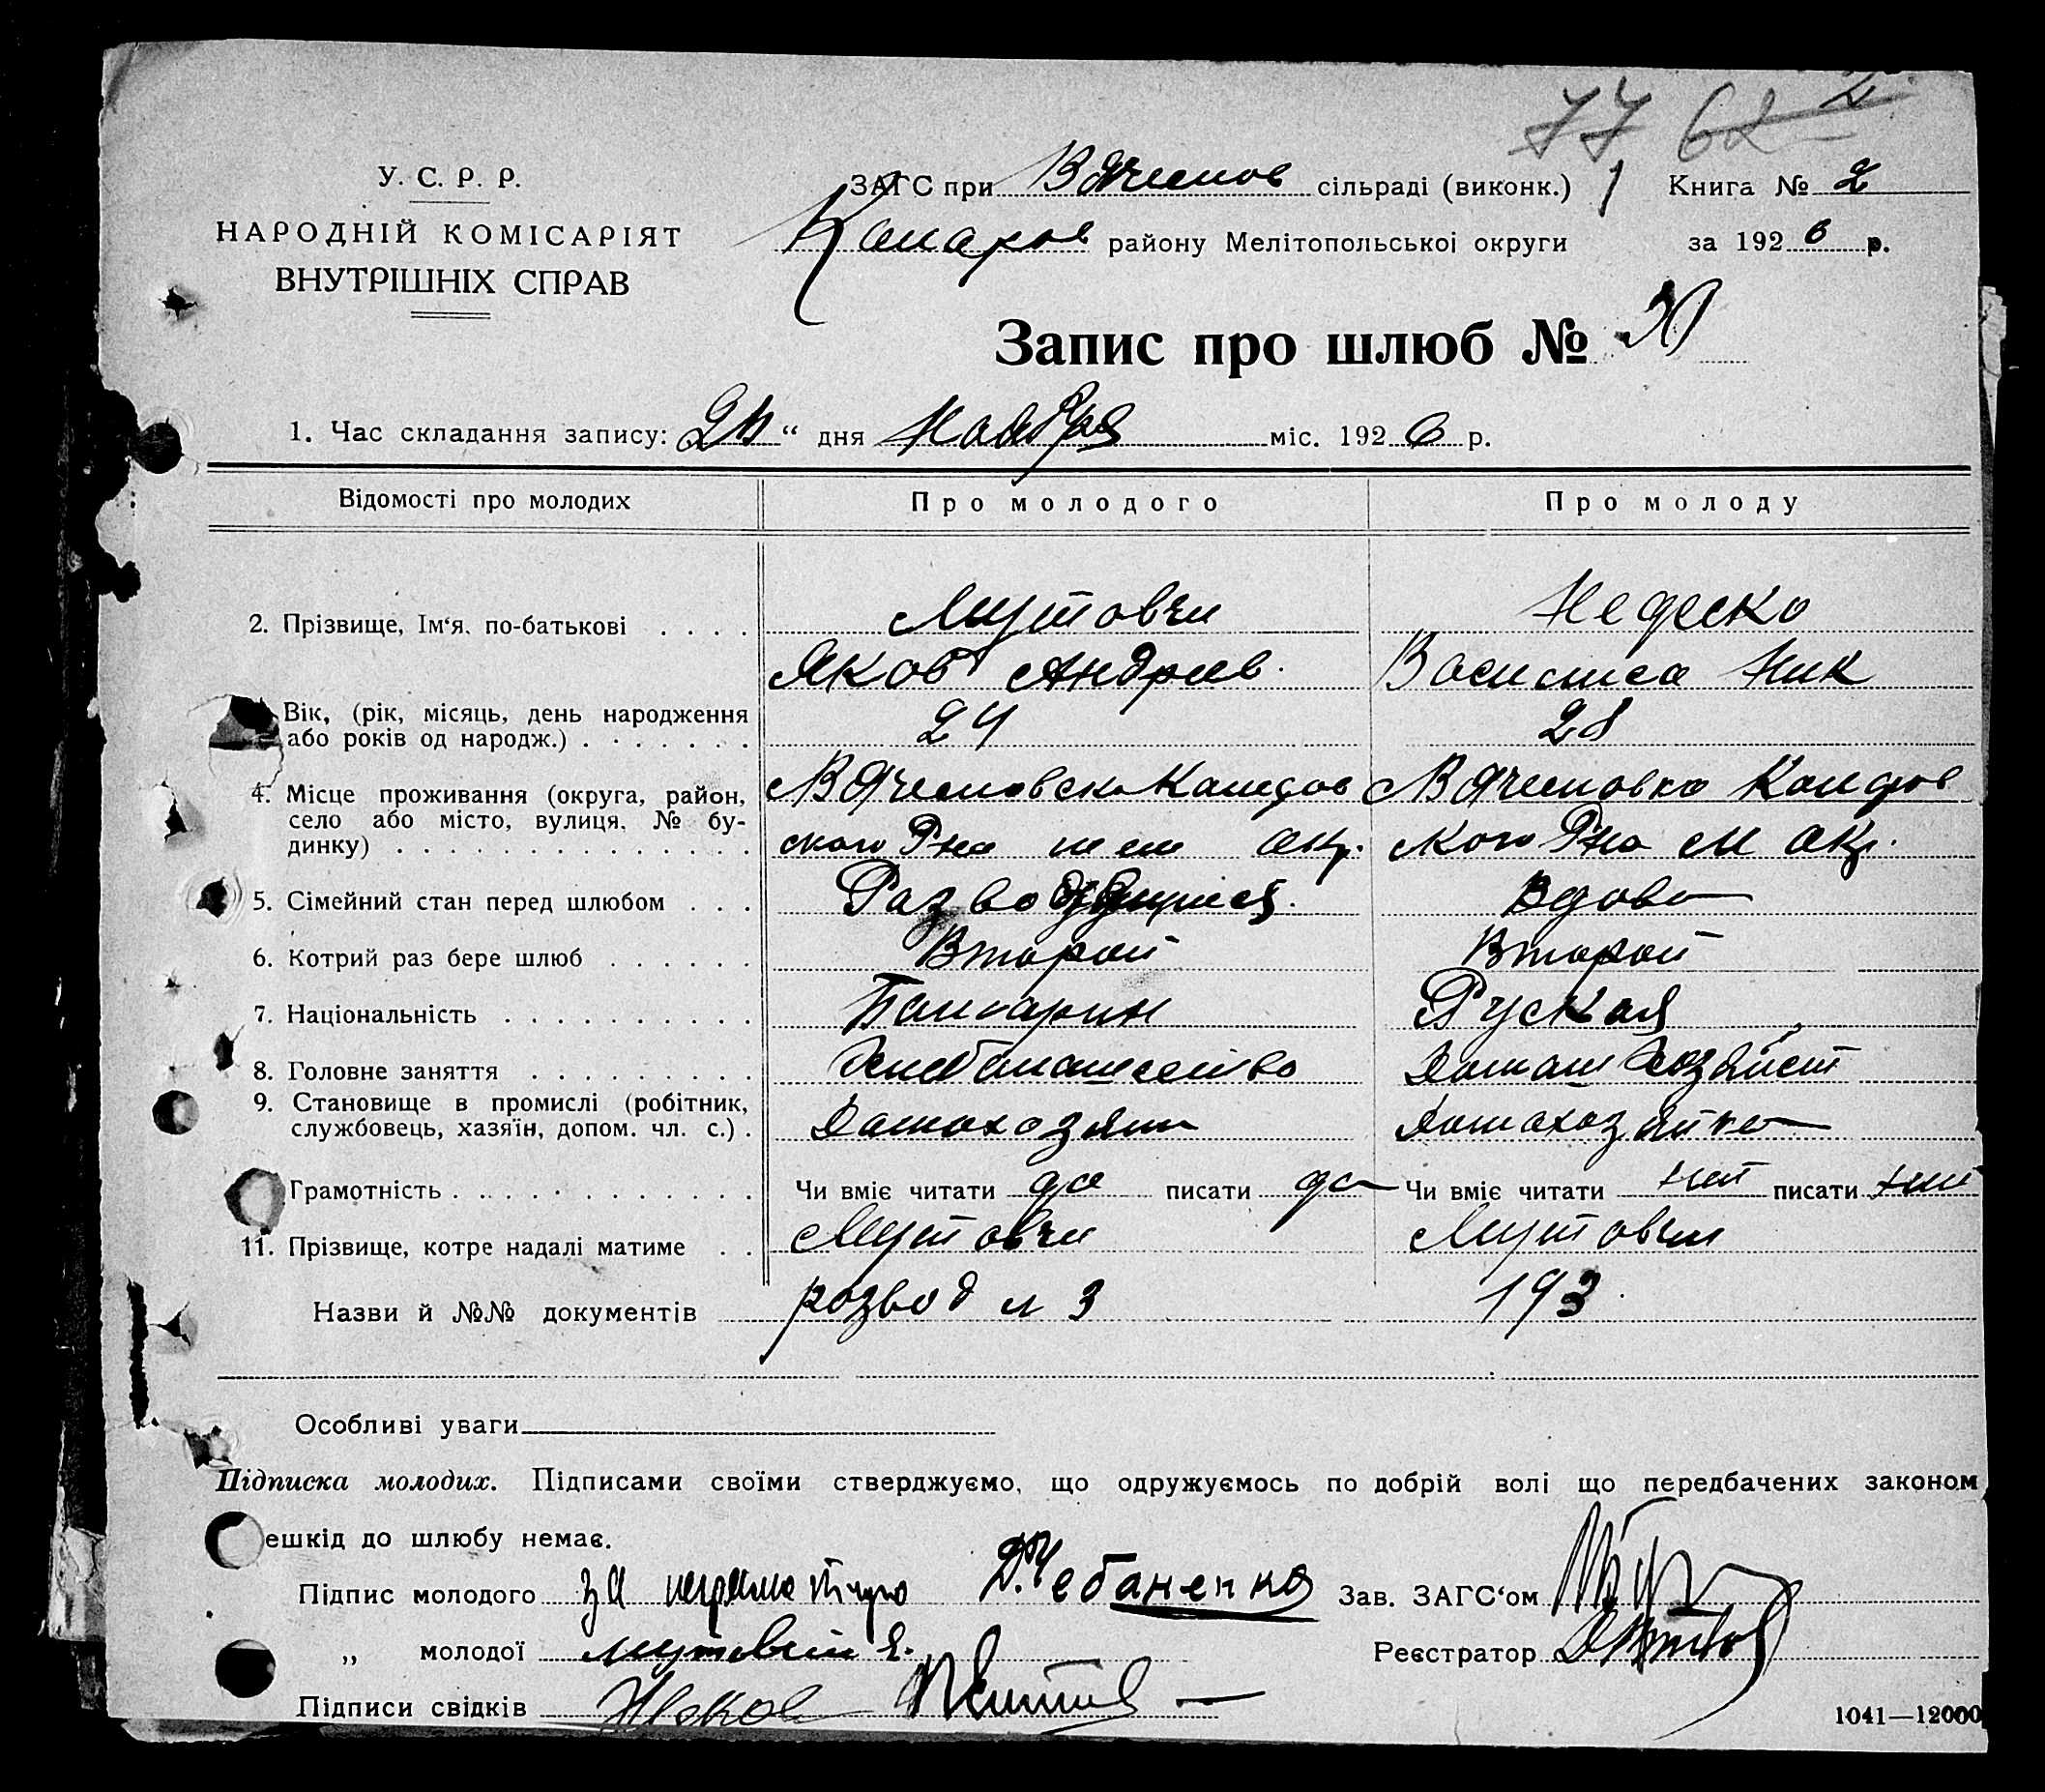 77
У. С. Р. Р.
НАРОДНІЙ КОМІСАРІЯТ
ВНУТРІШНІХ СПРАВ
ЗАГС при В Ячеслов сільраді (виконк.) Книга № 2
району Мелітопольської округи за 1926 р.
Запис про шлюб № 30
1. Час складання запису: “ дня Ноября міс. 1926 р.
Відомості про молодих Про молодого Про молоду
2. Прізвище, Ім‘я, по-батькові Мутовчи
Яков Андреев. Василиса Ник
Вік, (рік, місяць, день народження
або років од народж.) 24 28
4. Місце проживання (округа, район,
село або місто, вулиця, № бу-
динку) ского Рна мел окр. кого Рна М окр.
5. Сімейний стан перед шлюбом Вдова
6. Котрий раз бере шлюб Второй Второй
7. Національність Болгарин Руская
8. Головне заняття Хлебопашество Домаш Хозяйст
9. Становище в промислі (робітник,
службовець, хазяїн, допом. чл. с.) Домохозяин Домохозяйка
Грамотність Чи вміє читати да писати да Чи вміє читати нет писати нет
11. Прізвище, котре надалі матиме Мутовчи Мутовчи
Назви й №№ документів розвод № 3 193
Особливі уваги
Підписка молодих. Підписами своїми стверджуємо, що одружуємось по добрій волі що передбачених законом
ешкід до шлюбу немає.
Підпис молодого за неграмотную Д. Чебаненко Зав. ЗАГС‘ом
„ молодої Реєстратор
Підписи свідків
1041—12000